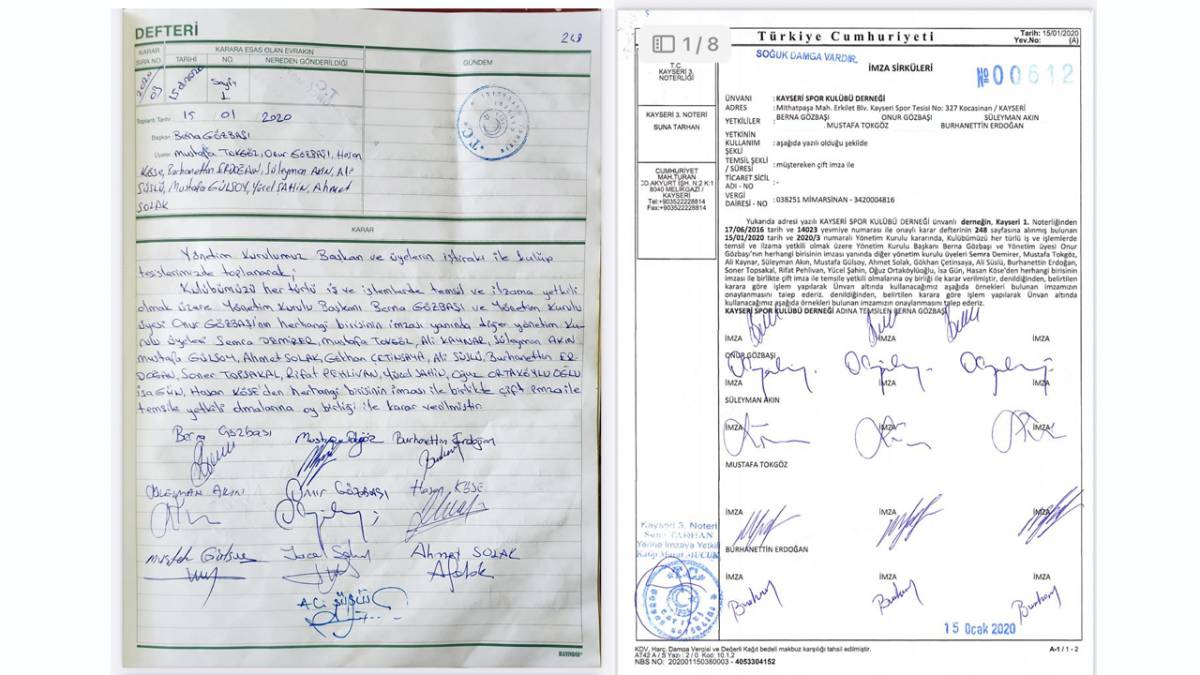 DEFTERİ
248
KARAR SIRA NO
KARARA ESAS OLAN EVRAKIN
TARİHİ
NO.
NEREDEN GÖNDERİLDİĞİ
GÜNDEM
2020
03
15.01.2020
Sayı
1
Toplantı Tarihi 15 01 2020
Başkan Berna GÖZBAŞI
Üyeler Mustafa TOKGÖZ, Onur GÖZBAŞI, Hasan
KÖSE, Burhanettin ERDOĞAN, Süleyman AKIN, Ali
SÜSLÜ, Mustafa GÜLSOY, Yücel ŞAHİN, Ahmet
SOLAK
KARAR
Yönetim Kurulumuz Başkan ve üyelerin iştiraki ile kulüp
tesislerimizde toplanarak;
Kulübümüzü her türlü iş ve işlemlerde temsil ve ilzama yetkili
olmak üzere Yönetim Kurulu Başkanı Berna GÖZBAŞI ve Yönetim Kurulu
üyesi Onur GÖZBAŞI'nın herhangi birisinin imzası yanında diğer yönetim Ku-
rulu üyelesi Semra DEMİRER, Mustafa TOKGÖZ, Ali KAYNAR, Süleyman AKIN
mustafa GÜLSOY, Ahmet SOLAK, Gökhan ÇETİNSAYA, Ali SÜSLÜ, Burhanettin ER-
DOĞAN, Soner TOPSAKAL, Rifat PEHLİVAN, Yücel ŞAHİN, Oğuz ORTAKÖYLÜOĞLU
İsa GÜN, Hasan KÖSE'den herhangi birisinin imzası ile birlikte çift imza ile
temsile yetkili olmalarına oy birliği ile karar verilmiştir
Berna GÖZBAŞI Mustafa Tokgöz Burhanettin Erdoğan
SÜLEYMAN AKIN Onur GÖZBAŞI Hasan KÖSE
Mustafa Gülsoy Yücel Şahin Ahmet SOLAK
ALİ SÜSLÜ
1/8
Türkiye Cumhuriyeti
Tarih: 15/01/2020
Yev.No: (A)
SOĞUK DAMGA VARDIR.
İMZA SİRKÜLERİ
Nº 00612
T.C.
KAYSERİ 3.
NOTERLİĞİ
KAYSERİ 3. NOTERİ
SUNA TARHAN
CUMHURİYET
MAH.TURAN
CD.AKYURT İŞH. N:2 K:1
8040 MELİKGAZİ /
KAYSERİ
Tel:+903522228814
Fax:+903522228814
ÜNVANI : KAYSERİ SPOR KULÜBÜ DERNEĞİ
ADRES : Mithatpaşa Mah. Erkilet Blv. Kayseri Spor Tesisi No: 327 Kocasinan / KAYSERİ
YETKİLİLER : BERNA GÖZBAŞI ONUR GÖZBAŞI SÜLEYMAN AKIN
MUSTAFA TOKGÖZ BURHANETTİN ERDOĞAN
YETKİNİN
KULLANIM : aşağıda yazılı olduğu şekilde
ŞEKLİ
TEMSİL ŞEKLİ
/ SÜRESİ : müştereken çift imza ile
TİCARET SİCİL
ADI - NO :-
VERGİ
DAİRESİ - NO : 038251 MİMARSİNAN - 3420004816
Yukarıda adresi yazılı KAYSERİ SPOR KULÜBÜ DERNEĞİ ünvanlı derneğin, Kayseri 1. Noterliğinden
17/06/2016 tarih ve 14023 yevmiye numarası ile onaylı karar defterinin 248 sayfasına alınmış bulunan
15/01/2020 ve 2020/3 numaralı Yönetim Kurulu kararında, Kulübümüzü her türlü iş ve işlemlerde
temsil ve ilzama yetkili olmak üzere Yönetim Kurulu Başkanı Berna Gözbaşı ve Yönetim Kurulu üyesi Onur
Gözbaşı'nın herhangi birisinin imzası yanında diğer yönetim kurulu üyeleri Semra Demirer, Mustafa Tokgöz,
Ali Kaynar, Süleyman Akın, Mustafa Gülsoy, Ahmet Solak, Gökhan Çetinsaya, Ali Süslü, Burhanettin Erdoğan,
Soner Topsakal, Rifat Pehlivan, Yücel Şahin, Oğuz Ortaköylüoğlu, İsa Gün, Hasan Köse'den herhangi birisinin
imzası ile birlikte çift imza ile temsile yetkili olmalarına oy birliği ile karar verilmiştir, denildiğinden, belirtilen
karara göre işlem yapılarak Ünvan altında kullanacağımız aşağıda örnekleri bulunan imzamızın
onaylanmasını talep ederiz. denildiğinden, belirtilen karara göre işlem yapılarak Ünvan altında
kullanacağımız aşağıda örnekleri bulunan imzamızın onaylanmasını talep ederiz.
KAYSERİ SPOR KULÜBÜ DERNEĞİ ADINA TEMSİLEN BERNA GÖZBAŞI
İMZA İMZA İMZA
ONUR GÖZBAŞI
İMZA İMZA İMZA
SÜLEYMAN AKIN
İMZA İMZA İMZA
MUSTAFA TOKGÖZ
İMZA İMZA İMZA
BURHANETTİN ERDOĞAN
İMZA İMZA İMZA
Kayseri 3. Noteri
Suna TARHAN
Yerine İmzaya Yetkili
Katip Murat MUCUK
15 Ocak 2020
KDV, Harç, Damga Vergisi ve Değerli Kağıt bedeli makbuz karşılığı tahsil edilmiştir.
AT42 A / S Yazı : 2 / 0 Kod: 10.1.2
NBS NO: 202001150380003 - 4053304152
A-1 / 1 - 2